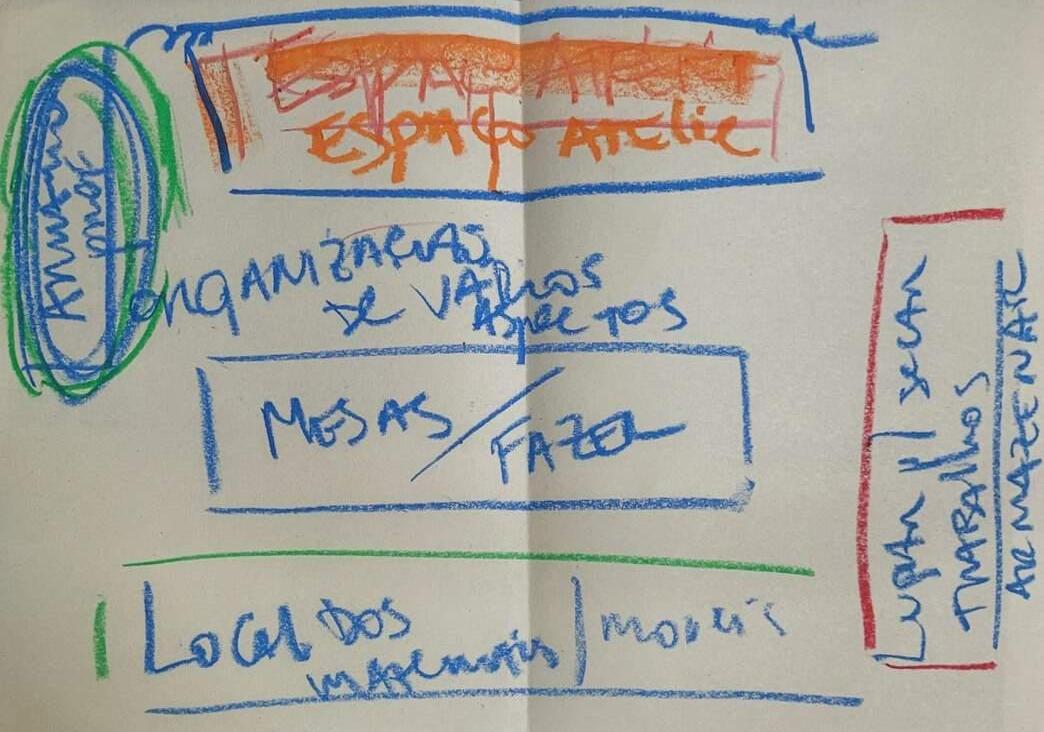 ESPAÇO ATELIE
ESPAÇO ATELIE
ORGANIZAÇÃO
de VÁRIOS
ASPECTOS
MESAS / FAZER
LOCAL DOS
materiais / moveis
secar
TRABALHOS
ARMAZENAR